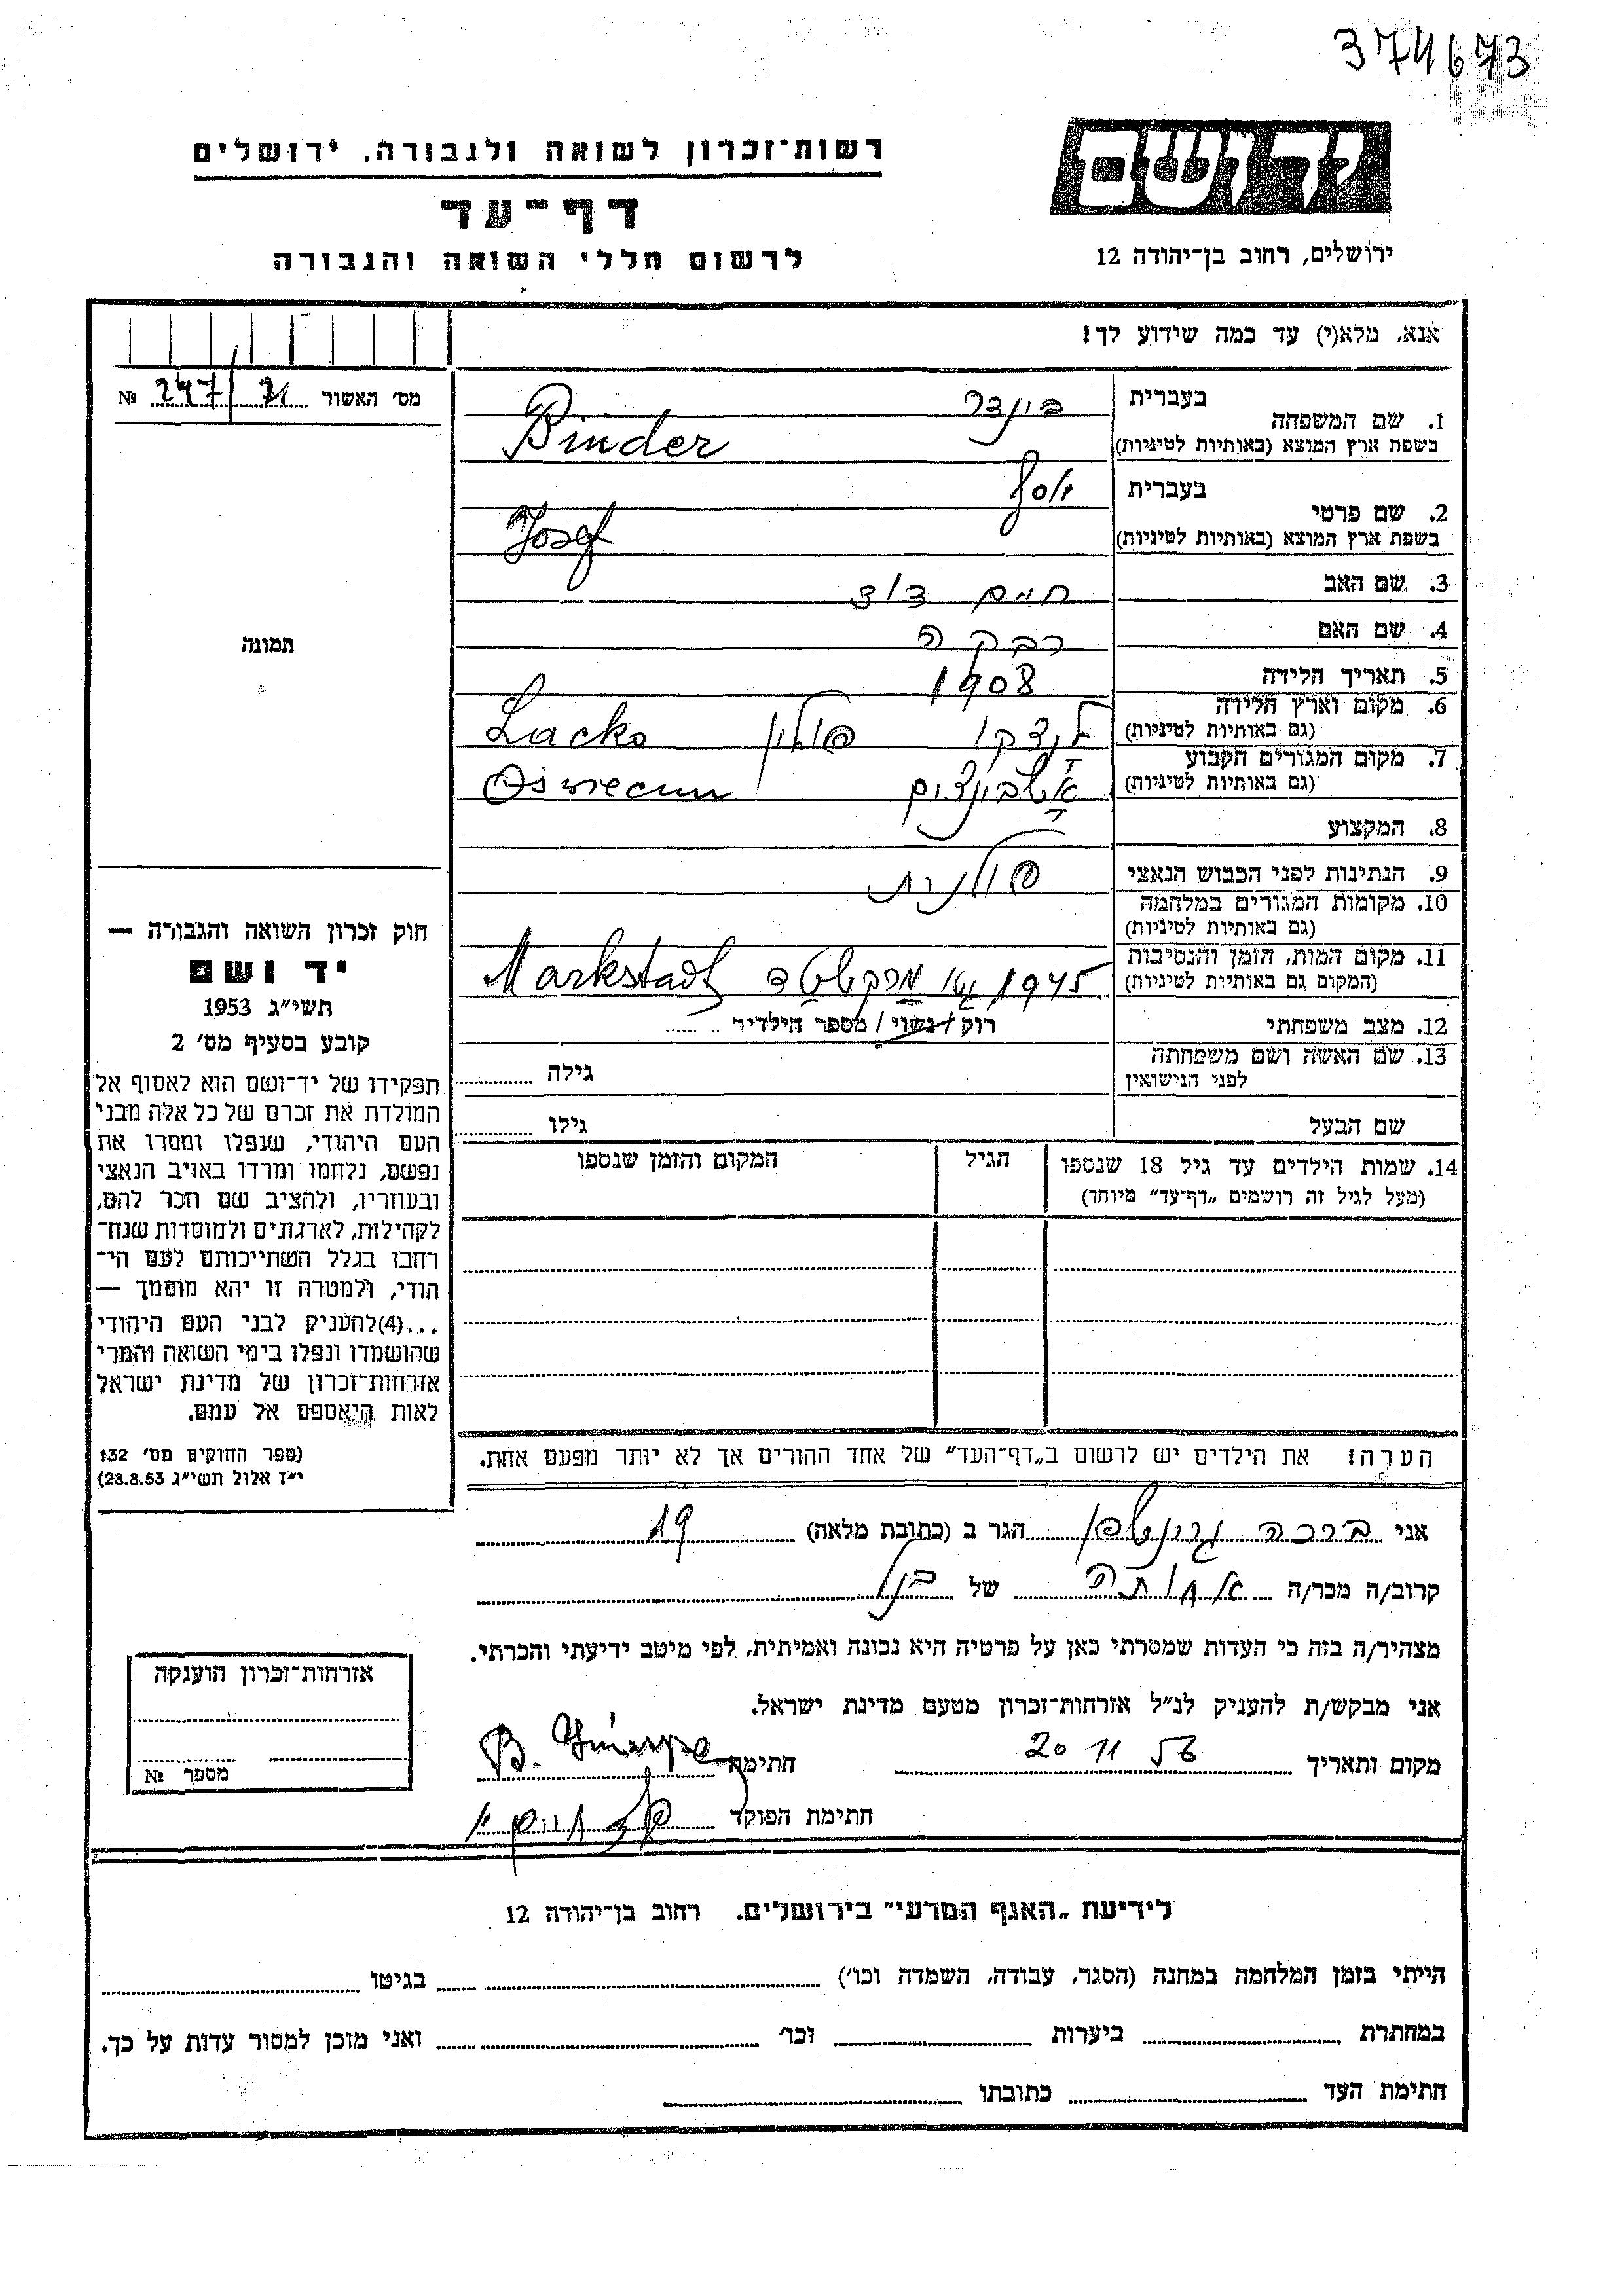 374673
רשות־זכרון לשואה ולגבורה, ירושלים
דף־עד
לרשום חללי השואה והגבורה
יד ושם
ירושלים, רחוב בן־יהודה 12
אנא, מלא(י) עד כמה שידוע לך!
מס׳ האשור 247/ №
1. שם המשפחה בעברית בינדר
בשפת ארץ המוצא (באותיות לטיניות) Binder
2. שם פרטי בעברית יוסף
בשפת ארץ המוצא (באותיות לטיניות) Josef
3. שם האב חיים דוד
4. שם האם רבקה
5. תאריך הלידה 1908
6. מקום וארץ הלידה לנדקו פולין Lacko
(גם באותיות לטיניות)
7. מקום המגורים הקבוע
(גם באותיות לטיניות)
8. המקצוע
9. הנתינות לפני הכבוש הנאצי פולנית
10. מקומות המגורים במלחמה
(גם באותיות לטיניות)
11. מקום המות, הזמן והנסיבות 1945 מרקשטט Markstadt
(המקום גם באותיות לטיניות)
12. מצב משפחתי רוק / נשוי / מספר הילדים
13. שם האשה ושם משפחתה גילה
לפני הנישואין
שם הבעל גילו
14. שמות הילדים עד גיל 18 שנספו הגיל המקום והזמן שנספו
(מעל לגיל זה רושמים „דף־עד” מיוחד)
הערה! את הילדים יש לרשום ב„דף־העד” של אחד ההורים אך לא יותר מפעם אחת.
תמונה
חוק זכרון השואה והגבורה —
יד ושם
תשי״ג 1953
קובע בסעיף מס׳ 2
תפקידו של יד־ושם הוא לאסוף אל
המולדת את זכרם של כל אלה מבני
העם היהודי, שנפלו ומסרו את
נפשם, נלחמו ומרדו באויב הנאצי
ובעוזריו, ולהציב שם וזכר להם,
לקהילות, לארגונים ולמוסדות שנח־
רחבו בגלל השתייכותם לעם הי־
הודי, ולמטרה זו יהא מוסמך —
...(4)להעניק לבני העם היהודי
שהושמדו ונפלו בימי השואה והמרי
אזרחות־זכרון של מדינת ישראל
לאות היאספם אל עמם.
(ספר החוקים מס׳ 132
י״ז אלול תשי״ג 28.8.53)
אני ברכה הגר ב (כתובת מלאה)
קרוב/ה מכר/ה של
מצהיר/ה בזה כי העדות שמסרתי כאן על פרטיה היא נכונה ואמיתית, לפי מיטב ידיעתי והכרתי.
אני מבקש/ת להעניק לנ״ל אזרחות־זכרון מטעם מדינת ישראל.
מקום ותאריך 20 11 56 חתימה B.
חתימת הפוקד
אזרחות־זכרון הוענקה
מספר №
לידיעת „האגף המדעי” בירושלים. רחוב בן־יהודה 12
הייתי בזמן המלחמה במחנה (הסגר, עבודה, השמדה וכו׳) בגיטו
במחתרת ביערות וכו׳ ואני מוכן למסור עדות על כך.
חתימת העד כתובתו